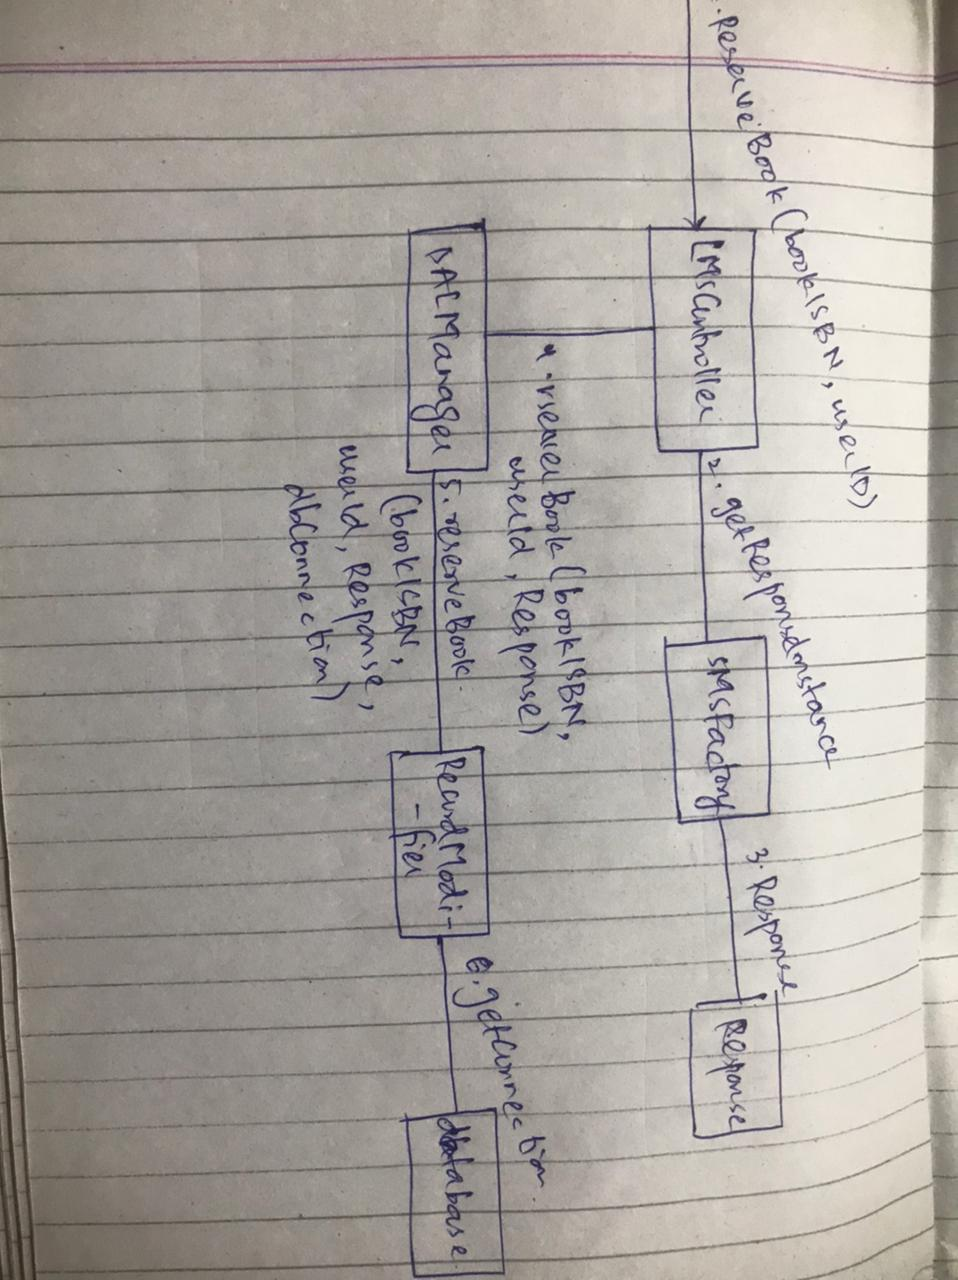 .ReserveBook(bookISBN, userID)
LMSController
2. getResponseInstance
SMSFactory
3. Response
Response
4. rserverBook(bookISBN,
userId, Response)
DALManager
5. reserveBook
(bookISBN,
userId, Response,
dbConnection)
RecordModi-
-fier
6. getConnection.
database